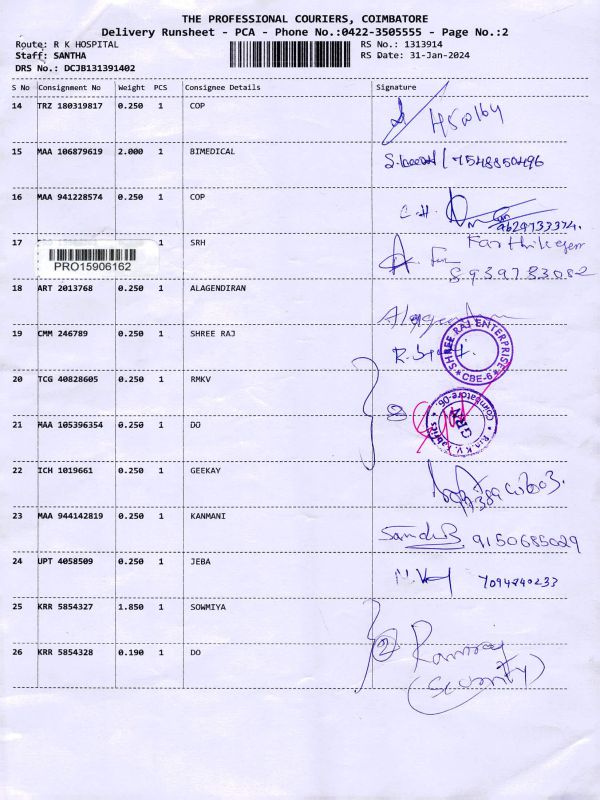 THE PROFESSIONAL COURIERS, COIMBATORE
Delivery Runsheet - PCA - Phone No.:0422-3505555 - Page No.:2
Route: R K HOSPITAL
Staff: SANTHA
DRS No.: DCJB131391402
RS No.: 1313914
RS Date: 31-Jan-2024
S No Consignment No Weight PCS Consignee Details Signature
14 TRZ 180319817 0.250 1 COP
15 MAA 106879619 2.000 1 BIMEDICAL 7548850496
16 MAA 941228574 0.250 1 COP C.H.
9629733374.
17 PRO15906162 1 SRH Karthikeyan
8939783082
18 ART 2013768 0.250 1 ALAGENDIRAN
19 CMM 246789 0.250 1 SHREE RAJ
SHREE RAJ ENTERPRISE
* CBE-6 *
20 TCG 40828605 0.250 1 RMKV
2
21 MAA 105396354 0.250 1 DO
Coimbatore-06.
GRN
22 ICH 1019661 0.250 1 GEEKAY
23 MAA 944142819 0.250 1 KANMANI 9150685029
24 UPT 4058509 0.250 1 JEBA 7094840233
25 KRR 5854327 1.850 1 SOWMIYA
2 Ramraj
26 KRR 5854328 0.190 1 DO
(Security)